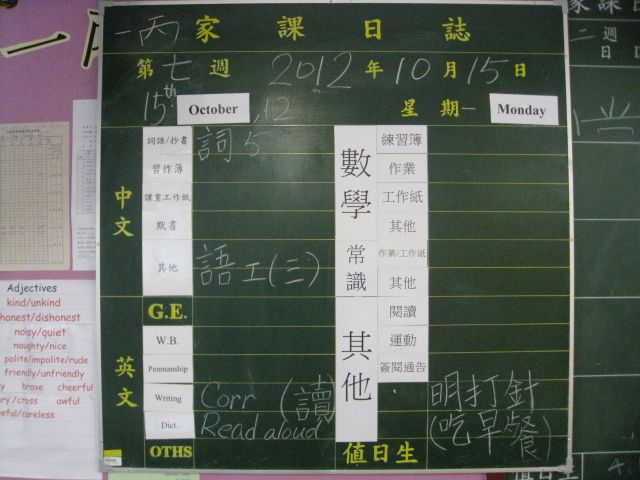 一丙 家課日誌
第七週 2012年10月15日
15th October, 12 星期一 Monday
中文
詞語/抄書 詞5
習作簿
課業工作紙
默書
其他 語工(三)
英文
G.E.
W.B.
Penmanship
Writing Corr (讀)
Dict. Read aloud
OTHS
數學
練習簿
作業
工作紙
其他
常識
作業/工作紙
其他
其他
閱讀
運動
簽閱通告
明打針
(吃早餐)
值日生
Adjectives
kind/unkind
honest/dishonest
noisy/quiet
naughty/nice
polite/impolite/rude
friendly/unfriendly
brave cheerful
/cross awful
/careless
家課
二週
日
值日生